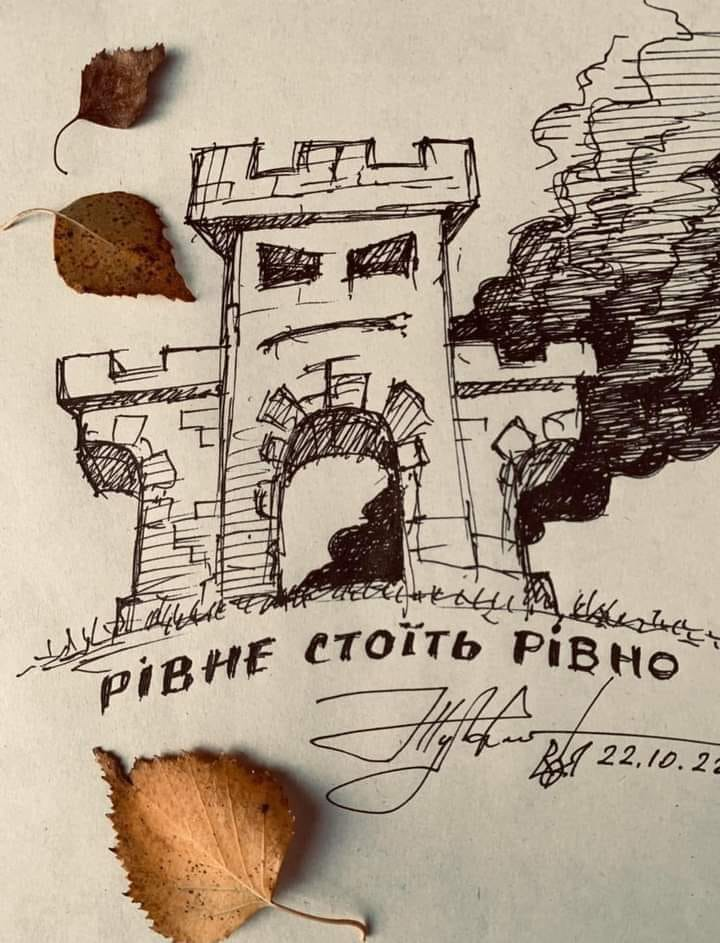 РіВНЕ СТОЇТЬ РіВНО
22.10.22